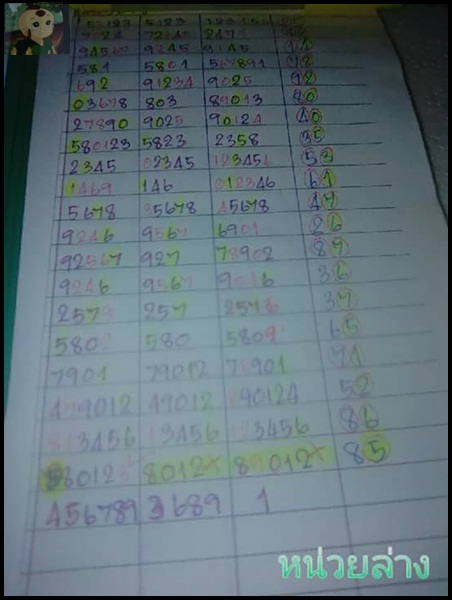 581 5801 567891 98
692 91234 9025 92
03678 803 89013 80
27890 9025 90124 40
580123 5823 2358 35
2345 02345 123456 53
1469 146 012346 61
5678 35678 45678 47
9246 9567 6901 26
92567 927 78902 87
9246 9567 9016 36
2579 257 2576 37
5802 580 5809 65
7901 79012 78901 71
479012 49012 190124 52
813456 13456 123456 86
580123 8012x 89012x 85
456789 3689 1
หน่วยล่าง